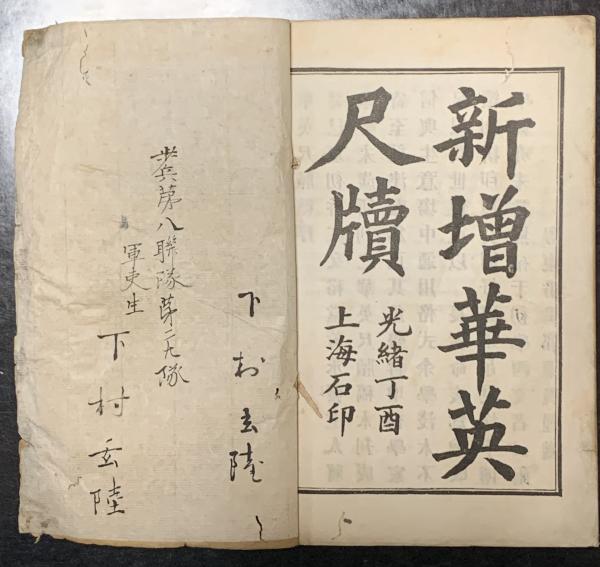 新增華英
尺牘
光緒丁酉
上海石印
下村玄陸
歩兵第八聯隊第二大隊
軍吏生
下村玄陸